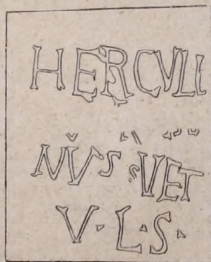 HERCVLI
NVS SVET
V·L·S·